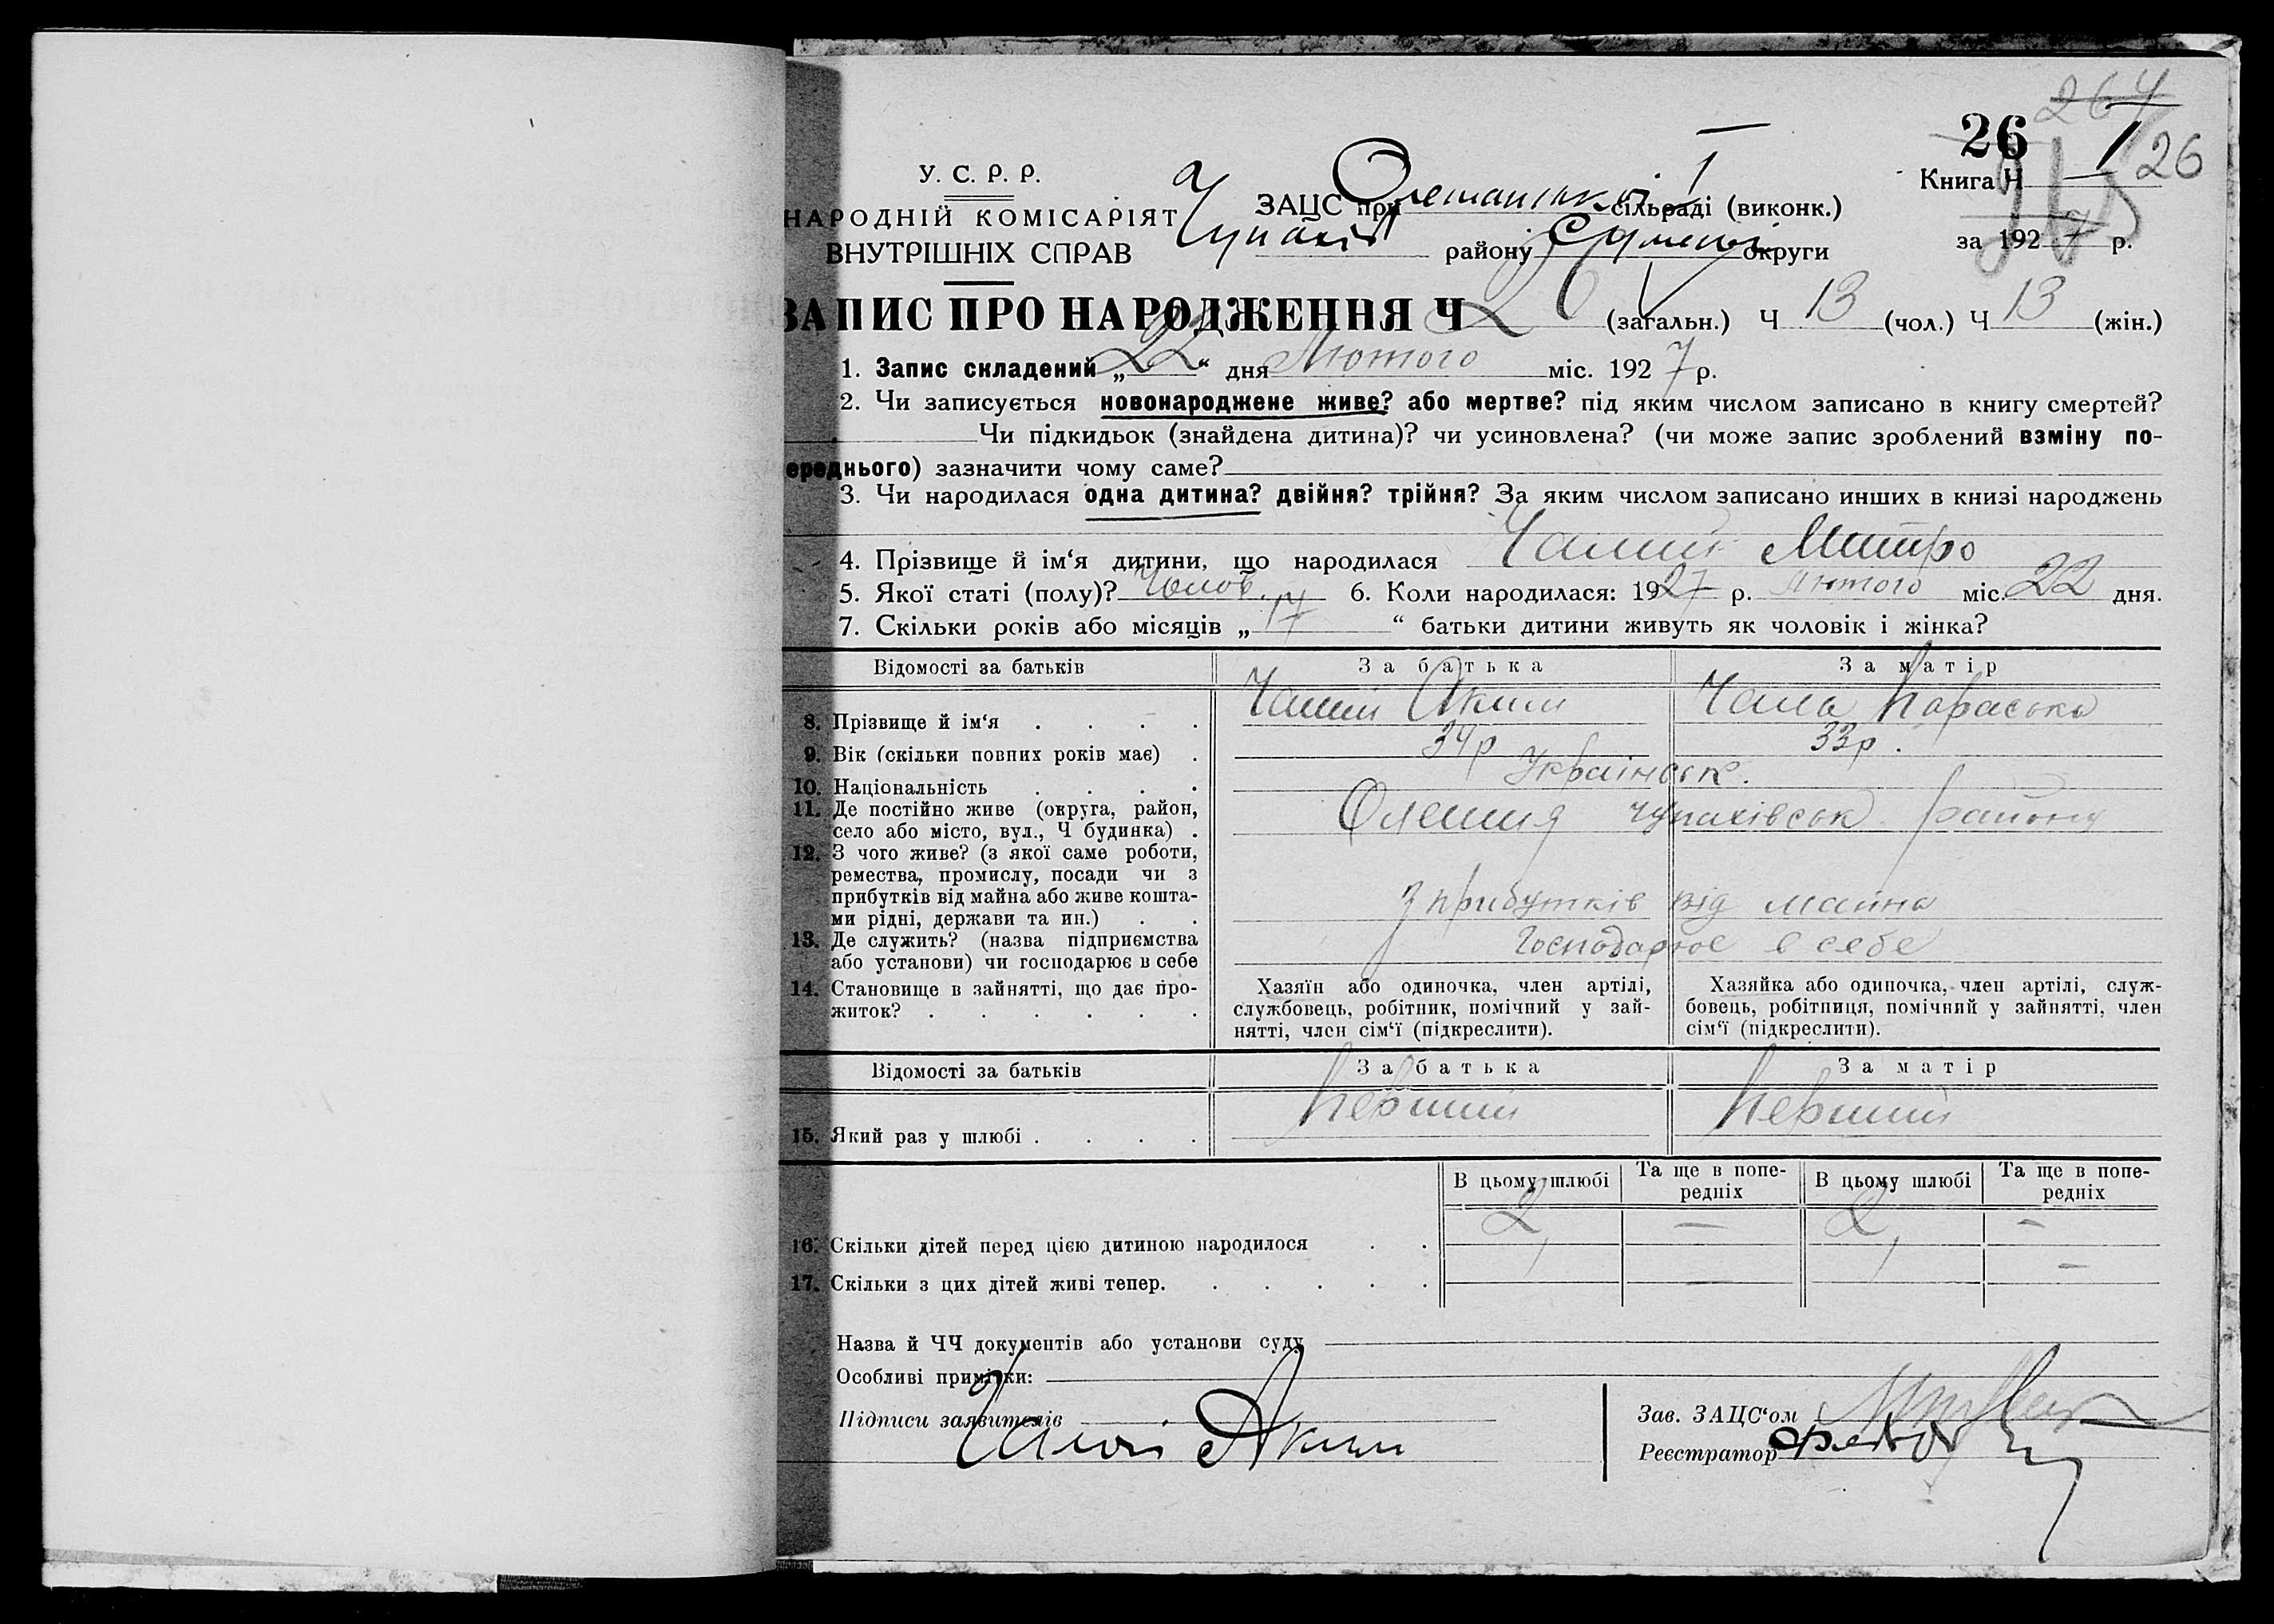 264
26 1 26
У. С. Р. Р.
НАРОДНІЙ КОМІСАРІЯТ
ВНУТРІШНІХ СПРАВ
ЗАЦС при сільраді (виконк.)
Чупахів району Сумської округи
Книга Ч
за 1927 р.
ЗАПИС ПРО НАРОДЖЕННЯ Ч 26 (загальн.) Ч 13 (чол.) Ч 13 (жін.)
1. Запис складений „22“ дня Лютого міс. 1927 р.
2. Чи записується новонароджене живе? або мертве? під яким числом записано в книгу смертей?
Чи підкидьок (знайдена дитина)? чи усиновлена? (чи може запис зроблений взміну по-
ереднього) зазначити чому саме?
3. Чи народилася одна дитина? двійня? трійня? За яким числом записано инших в книзі народжень
4. Прізвище й ім‘я дитини, що народилася Чалий Митро
5. Якої статі (полу)? Чолов. 6. Коли народилася: 1927 р. Лютого міс. 22 дня.
7. Скільки років або місяців „17“ батьки дитини живуть як чоловік і жінка?
Відомості за батьків За батька За матір
8. Прізвище й ім‘я . . . . Чалий Аким Чала Параська
9. Вік (скільки повних років має) . 34р 33р.
10. Національність . . . . Українськ.
11. Де постійно живе (округа, район,
село або місто, вул., Ч будинка) . Олешня Чупахівськ. району
12. З чого живе? (з якої саме роботи,
ремества, промислу, посади чи з
прибутків від майна або живе кошта-
ми рідні, держави та ин.) . . З прибутків від майна
13. Де служить? (назва підприємства
або установи) чи господарює в себе Господарює в себе
14. Становище в зайнятті, що дає про-
житок? . . . . . .
Хазяїн або одиночка, член артілі,
службовець, робітник, помічний у зай-
нятті, член сім‘ї (підкреслити).
Хазяйка або одиночка, член артілі, служ-
бовець, робітниця, помічний у зайнятті, член
сім‘ї (підкреслити).
Відомості за батьків За батька За матір
15. Який раз у шлюбі . . . . Перший Перший
В цьому шлюбі Та ще в попе-
редніх В цьому шлюбі Та ще в попе-
редніх
16. Скільки дітей перед цією дитиною народилося . . 2 — 2 —
17. Скільки з цих дітей живі тепер. . . . . . 1 — 1 —
Назва й ЧЧ документів або установи суду
Особливі примітки:
Підписи заявителів Чалий Аким
Зав. ЗАЦС‘ом
Реєстратор